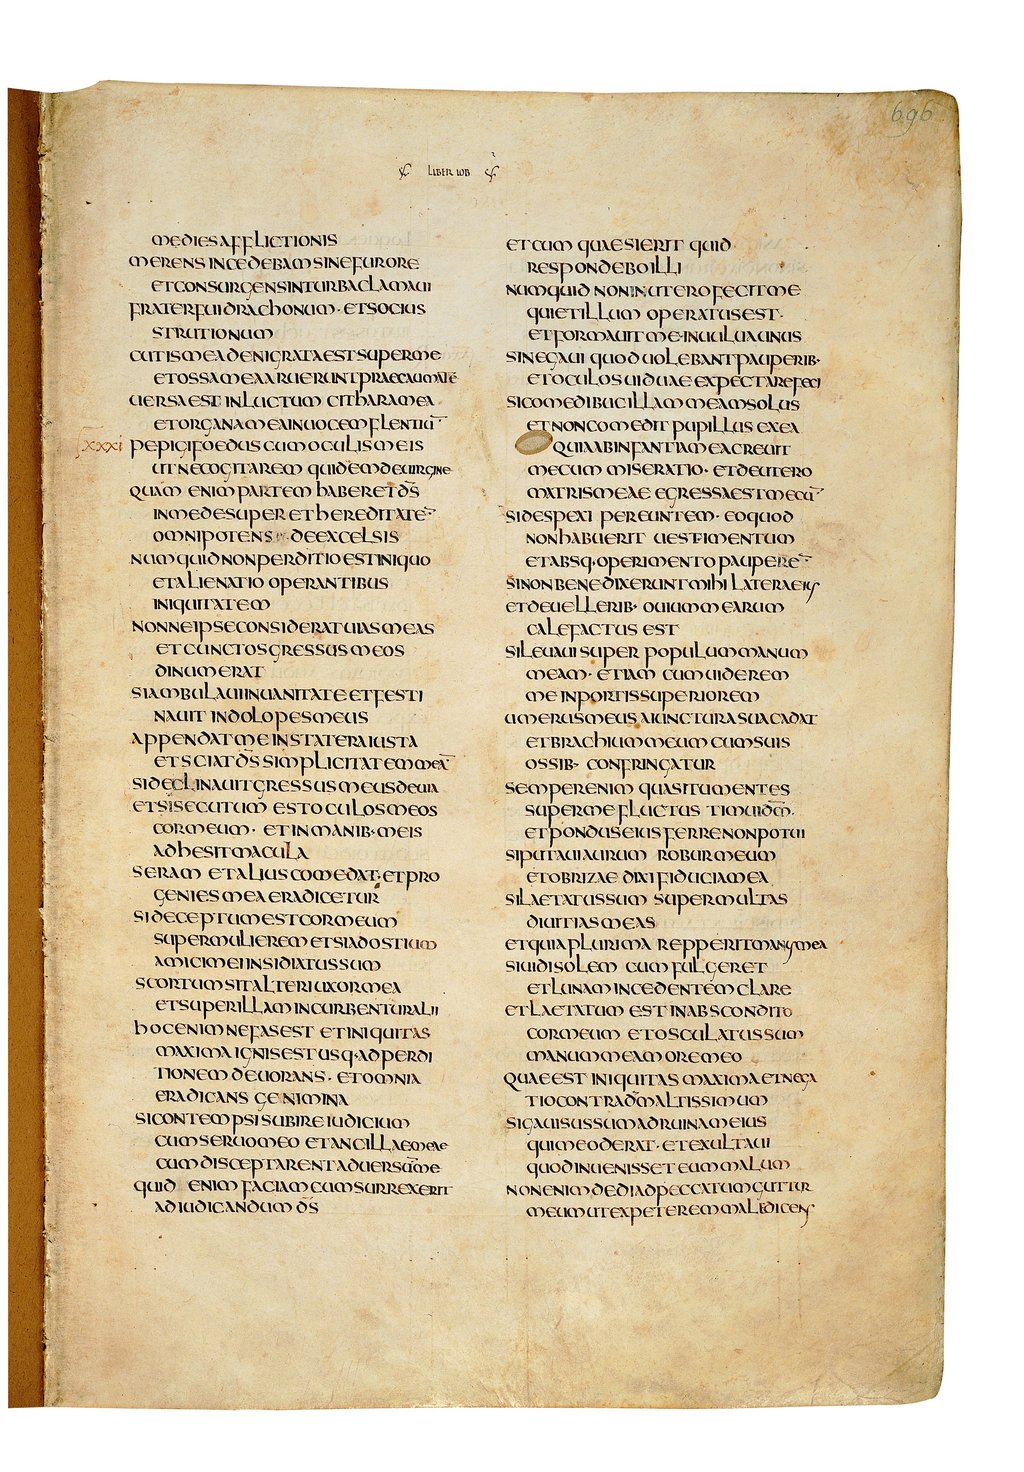 696
LIBER IOB
ME DIES AFFLICTIONIS
MERENS INCEDEBAM SINE FURORE
ET CONSURGENS IN TURBA CLAMAUI
FRATER FUI DRACHONUM · ET SOCIUS
STRUTIONUM
CUTIS MEA DENIGRATA EST SUPER ME
ET OSSA MEA ARUERUNT PRAE CAUMATE
UERSA EST IN LUCTUM CITHARA MEA
ET ORGANA MEA IN UOCEM FLENTIŪ
XXXI PEPIGI FOEDUS CUM OCULIS MEIS
UT NE COGITAREM QUIDEM DE UIRGINE
QUAM ENIM PARTEM HABERET D̅S
IN ME DESUPER ET HEREDITATĒ
OMNIPOTENS DE EXCELSIS
NUMQUID NON PERDITIO EST INIQUO
ET ALIENATIO OPERANTIBUS
INIQUITATEM
NONNE IPSE CONSIDERAT UIAS MEAS
ET CUNCTOS GRESSUS MEOS
DINUMERAT
SI AMBULAUI IN UANITATE ET FESTI
NAUIT IN DOLO PES MEUS
APPENDAT ME IN STATERA IUSTA
ET SCIAT D̅S SIMPLICITATEM MEĀ
SI DECLINAUIT GRESSUS MEUS DE UIA
ET SI SECUTUM EST OCULOS MEOS
COR MEUM · ET IN MANIB· MEIS
ADHESIT MACULA
SERAM ET ALIUS COMEDAT· ET PRO
GENIES MEA ERADICETUR
SI DECEPTUM EST COR MEUM
SUPER MULIEREM ET SI AD OSTIUM
AMICI MEI INSIDIATUS SUM
SCORTUM SIT ALTERI UXOR MEA
ET SUPER ILLAM INCURBENTUR ALII
HOC ENIM NEFAS EST ET INIQUITAS
MAXIMA IGNIS EST USQ· AD PERDI
TIONEM DEUORANS · ET OMNIA
ERADICANS GENIMINA
SI CONTEMPSI SUBIRE IUDICIUM
CUM SERUO MEO ET ANCILLAE MEAE
CUM DISCEPTARENT ADUERSŪ ME
QUID ENIM FACIAM CUM SURREXERIT
AD IUDICANDUM D̅S
ET CUM QUAESIERIT QUID
RESPONDEBO ILLI
NUMQUID NON IN UTERO FECIT ME
QUI ET ILLUM OPERATUS EST·
ET FORMAUIT ME IN UULUA UNUS
SI NEGAUI QUOD UOLEBANT PAUPERIB·
ET OCULOS UIDUAE EXPECTARE FECI
SI COMEDI BUCILLAM MEAM SOLUS
ET NON COMEDIT PUPILLUS EX EA
QUIA AB INFANTIA MEA CREUIT
MECUM MISERATIO · ET DE UTERO
MATRIS MEAE EGRESSA EST MECŪ
SI DESPEXI PEREUNTEM · EO QUOD
NON HABUERIT UESTIMENTUM
ET ABSQ· OPERIMENTO PAUPERE
SI NON BENEDIXERUNT MIHI LATERA EIUS
ET DE UELLERIB· OUIUM MEARUM
CALEFACTUS EST
SI LEUAUI SUPER POPULUM MANUM
MEAM · ETIAM CUM UIDEREM
ME IN PORTIS SUPERIOREM
UMERUS MEUS A IUNCTURA SUA CADAT
ET BRACHIUM MEUM CUM SUIS
OSSIB· CONFRINGATUR
SEMPER ENIM QUASI TUMENTES
SUPER ME FLUCTUS TIMUI D̅M·
ET PONDUS EIUS FERRE NON POTUI
SI PUTAUI AURUM ROBUR MEUM
ET OBRIZAE DIXI FIDUCIA MEA
SI LAETATUS SUM SUPER MULTAS
DIUITIAS MEAS
ET QUIA PLURIMA REPPERIT MANUS MEA
SI UIDI SOLEM CUM FULGERET
ET LUNAM INCEDENTEM CLARE
ET LAETATUM EST IN ABSCONDITO
COR MEUM ET OSCULATUS SUM
MANUM MEAM ORE MEO
QUAE EST INIQUITAS MAXIMA ET NEGA
TIO CONTRA D̅M ALTISSIMUM
SI GAUISUS SUM AD RUINAM EIUS
QUI ME ODERAT · ET EXULTAUI
QUOD INUENISSET EUM MALUM
NON ENIM DEDI AD PECCATUM GUTTUR
MEUM UT EXPETEREM MALEDICENS